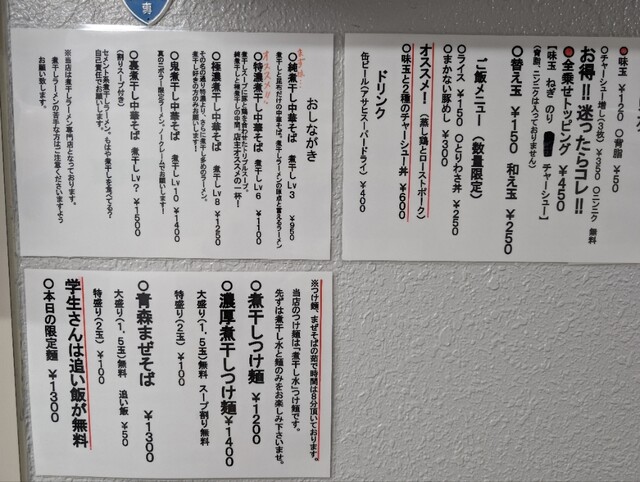 おしながき
まずは…
○純煮干し中華そば 煮干しLv3 ¥950
煮干しと昆布だけの中華そば。煮干しラーメンの原点と言えるラーメン
オススメ!!
○特濃煮干し中華そば 煮干しLv6 ¥1100
煮干しスープに豚と鶏を合わせたトリプルスープ。
純煮干しと極煮干しの中間。店主オススメの一杯!
○極濃煮干し中華そば 煮干しLv8 ¥1250
その名の通り特濃より、さらに煮干し多めのラーメン。
煮干し好きの方のみお願いします!
○鬼煮干し中華そば 煮干しLv10 ¥1400
真のニボラー限定ラーメン。ノークレームでお願いします!
○裏煮干し中華そば 煮干しLv? ¥1500
(割りスープ付き)
セメント系煮干しラーメン。もはや煮干しを食べてる?
自己責任でお願いします。
※当店は煮干しラーメン専門店となっております。
煮干しラーメンの苦手な方はご注意くださいますよう
お願い致します。
●味玉 ¥120 ○背脂 ¥50
○チャーシュー増し(3枚) ¥350 ○ニンニク 無料
お得!!迷ったらコレ!!
●全乗せトッピング ¥450
【味玉 ねぎ のり チャーシュー】
(背脂、ニンニクは入っておりません)
○替え玉 ¥150 和え玉 ¥250
ご飯メニュー(数量限定)
○ライス ¥150 ○とりわさ丼 ¥250
○まかない豚めし ¥300
オススメ!(蒸し鶏とローストポーク)
○味玉と2種のチャーシュー丼 ¥600
ドリンク
缶ビール(アサヒスーパードライ) ¥400
※つけ麺、まぜそばの茹で時間は8分頂いております。
当店のつけ麺は「煮干し水」つけ麺です。
先ずは煮干し水と麺のみをお楽しみ下さいませ。
○煮干しつけ麺 ¥1200
○濃厚煮干しつけ麺 ¥1400
大盛り(1.5玉)無料 スープ割り無料
特盛り(2玉) ¥100
○青森まぜそば ¥1300
大盛り(1.5玉)無料 追い飯 ¥50
特盛り(2玉) ¥100
学生さんは追い飯が無料
○本日の限定麺 ¥1300